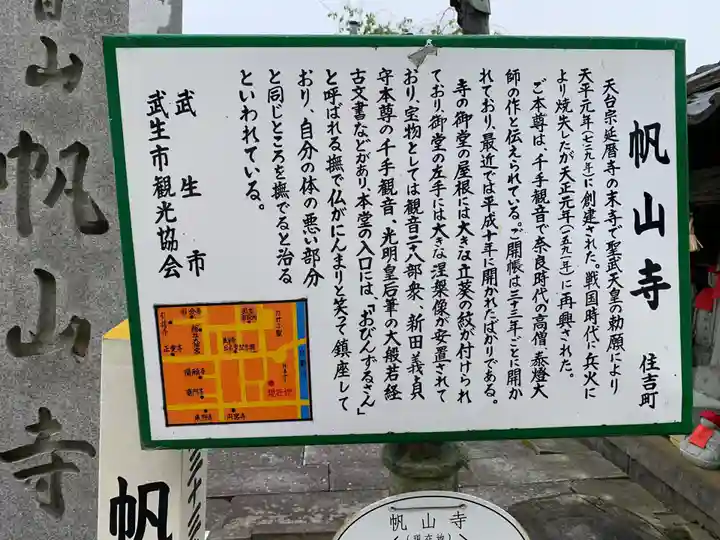 帆山寺 住吉町
天台宗延暦寺の末寺で聖武天皇の勅願により
天平元年(七二九年)に創建された。戦国時代に兵火に
より焼失したが天正元年(一五九一年)に再興された。
ご本尊は、千手観音で奈良時代の高僧、泰燈大
師の作と伝えられている。ご開帳は三十三年ごとに開か
れており、最近では平成十年に開かれたばかりである。
寺の御堂の屋根には大きな立葵の紋が付けられ
ており、御堂の左手には大きな涅槃像が安置されて
おり、宝物としては観音二十八部衆、新田義貞
守本尊の千手観音、光明皇后筆の大般若経
古文書などがあり、本堂の入口には、「おびんずるさん」
と呼ばれる撫で仏がにんまりと笑って鎮座して
おり、自分の体の悪い部分
と同じところを撫でると治る
といわれている。
武生市
武生市観光協会
現在地
正覚寺
帆山寺
山帆山寺
帆
三十三